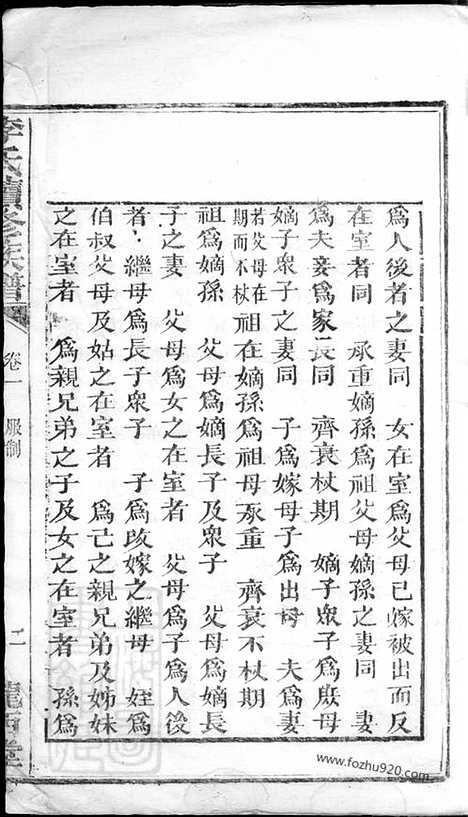 爲人後者之妻同　女在室爲父母已嫁被出而反
在室者同　承重嫡孫爲祖父母嫡孫之妻同　妻
爲夫妾爲家長同　齊衰杖期　嫡子衆子爲庶母
嫡子衆子之妻同　子爲嫁母子爲出母　夫爲妻
若父母在
期而不杖
祖在嫡孫爲祖母承重　齊衰不杖期
祖爲嫡孫　父母爲嫡長子及衆子　父母爲嫡長
子之妻　父母爲女之在室者　父母爲子爲人後
者　繼母爲長子衆子　子爲改嫁之繼母　姪爲
伯叔父母及姑之在室者　爲亡之親兄弟及姊妹
之在室者　爲親兄弟之子及女之在室者　孫爲
李氏續修族譜
卷一　服制
二
隴西堂
www.fozhu920.com